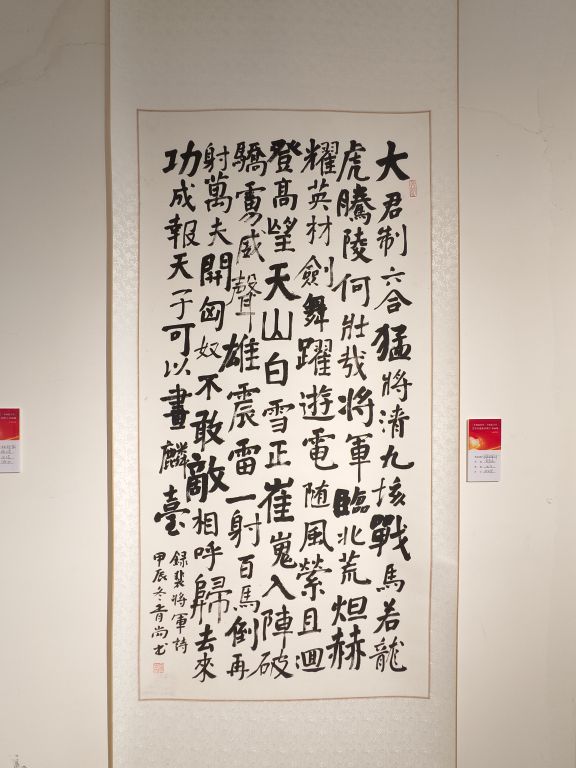 大君制六合猛將清九垓戰馬若龍
虎騰陵何壯哉將軍臨北荒烜赫
耀英材劍舞躍遊電随風縈且迴
登高望天山白雪正崔嵬入陣破
驕虜威聲雄震雷一射百馬倒再
射萬夫開匈奴不敢敵相呼歸去來
功成報天子可以畫麟臺
録裴將軍詩
甲辰冬青尚